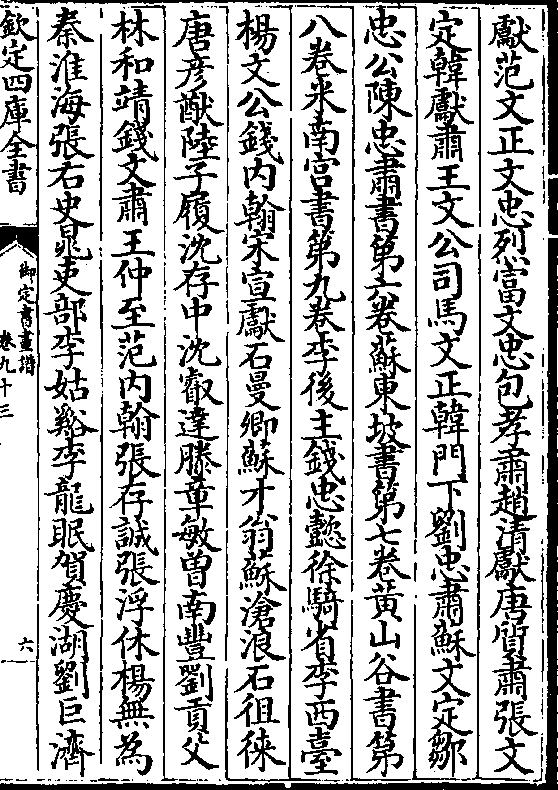 獻范文正文忠烈富文忠包孝肅趙清獻唐質肅張文
定韓獻肅王文公司馬文正韓門下劉忠肅蘇文定鄒
忠公陳忠肅書第六卷蘇東坡書第七卷黄山谷書第
八卷米南宫書第九卷李後主錢忠懿徐騎省李西臺
楊文公錢内翰宋宣獻石曼卿蘇才翁蘇滄浪石徂徠
唐彦猷陸子履沈存中沈睿達滕章敏曽南豐劉貢父
林和靖錢文肅王仲至范内翰張存誠張浮休楊無為
秦淮海張右史晁吏部李姑谿李龍眠賀慶湖劉巨濟
欽定四庫全書
御定書畫譜
卷九十三
六